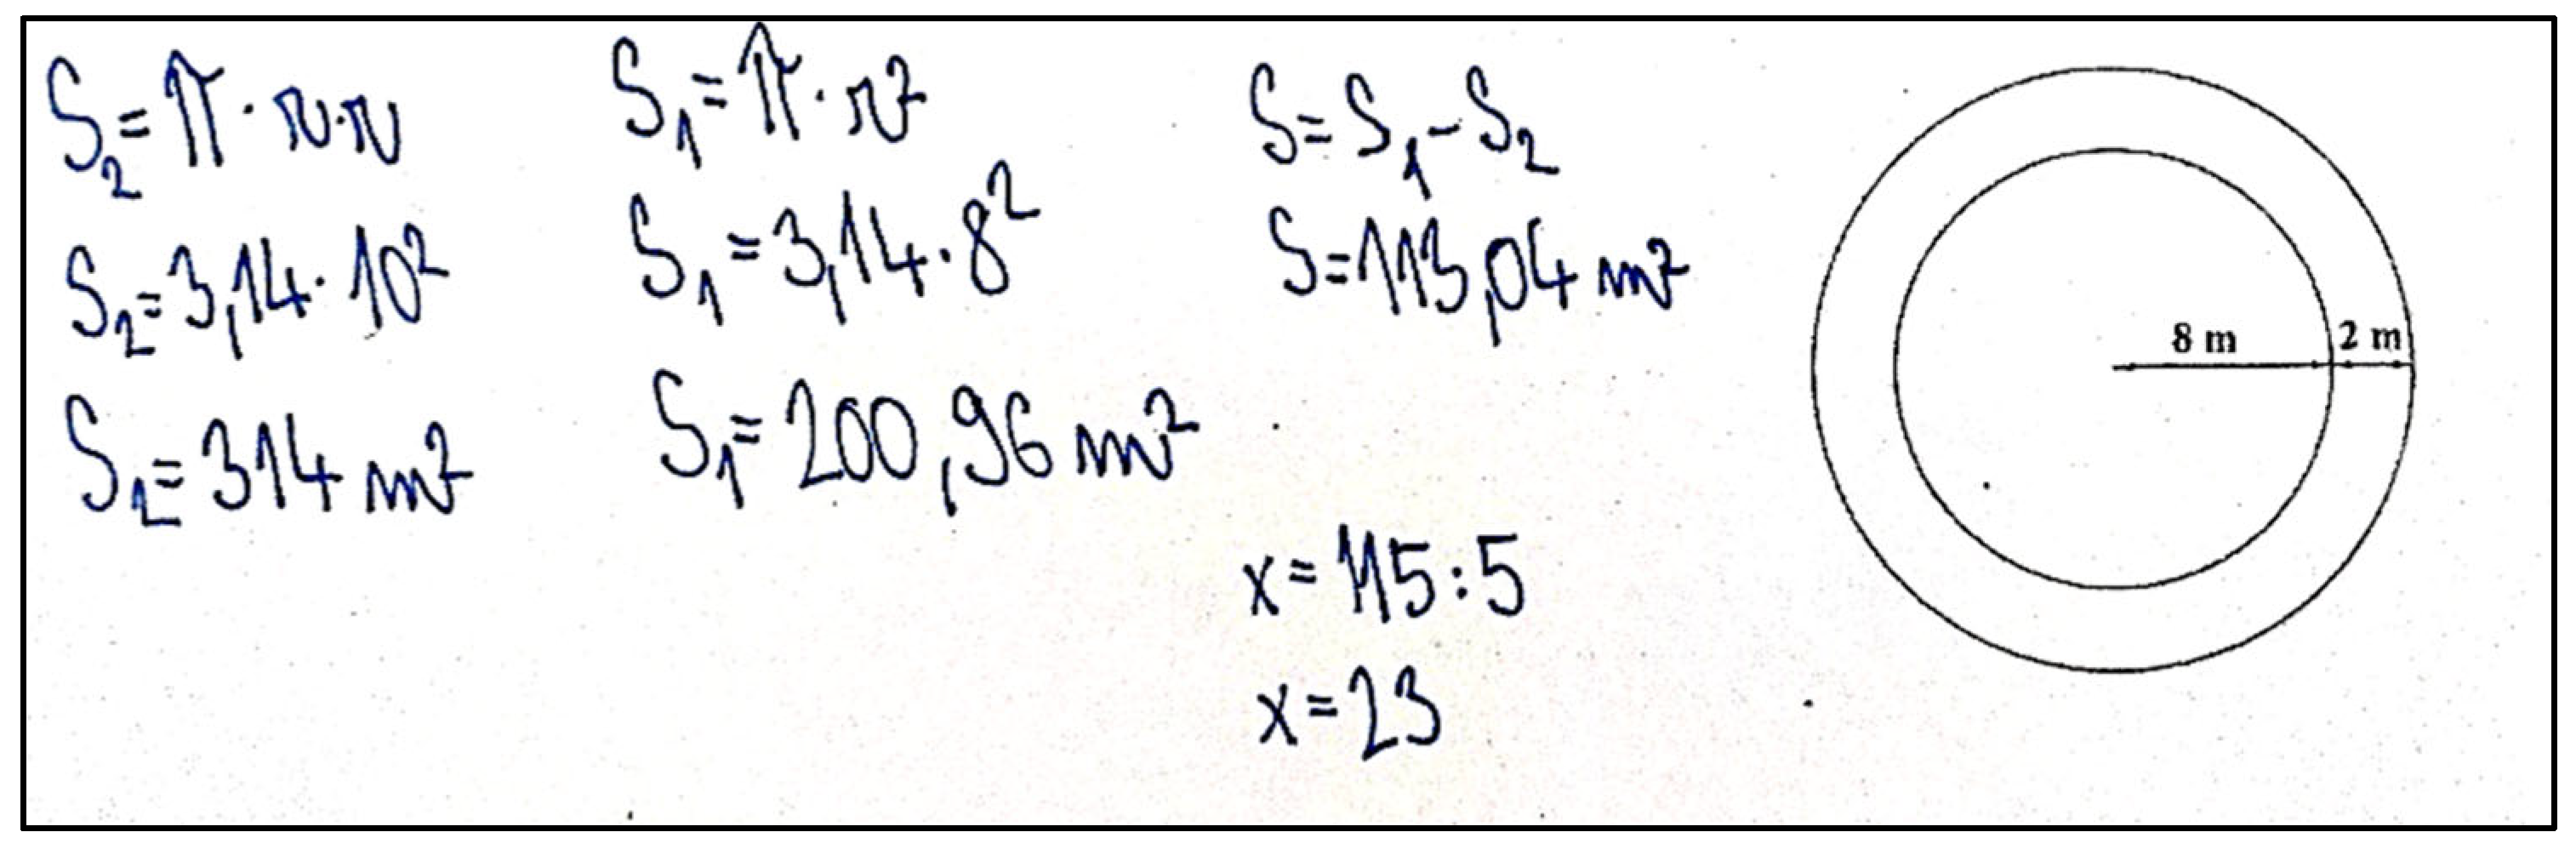 S₂ = π · r · r
S₂ = 3,14 · 10²
S₂ = 314 m²
S₁ = π · r²
S₁ = 3,14 · 8²
S₁ = 200,96 m²
S = S₁ - S₂
S = 113,04 m²
x = 115 : 5
x = 23
8 m
2 m